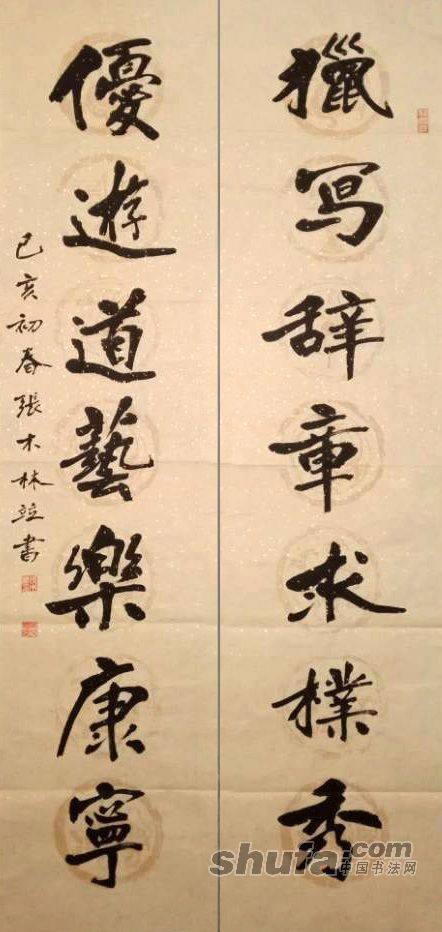 獵写辞章求樸秀
優遊道藝樂康寧
己亥初春張木林竝書
shufa.com
中国书法网